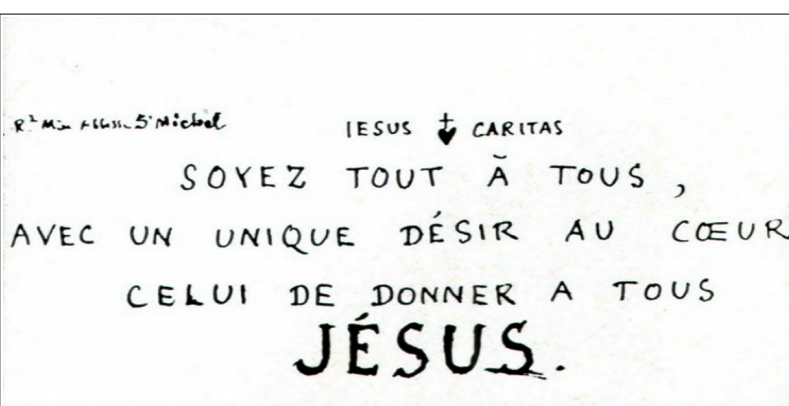 Michel IESUS CARITAS
SOYEZ TOUT À TOUS,
AVEC UN UNIQUE DÉSIR AU CŒUR
CELUI DE DONNER A TOUS
JÉSUS.